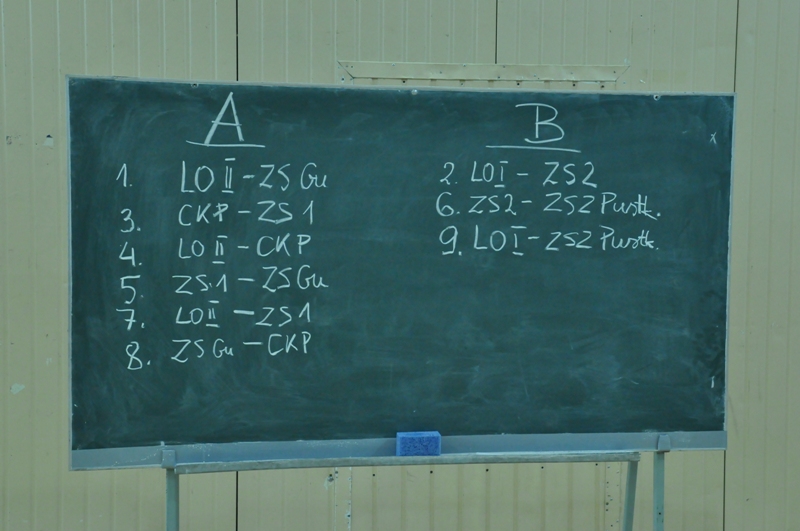 A
1. LO II - ZS Gu
3. CKP - ZS 1
4. LO II - CKP
5. ZS.1 - ZSGu
7. LO II - ZS1
8. ZSGu - CKP
B
2. LO I - ZS2
6. ZS2 - ZS2 Pustk.
9. LO I - ZS2 Pustk.